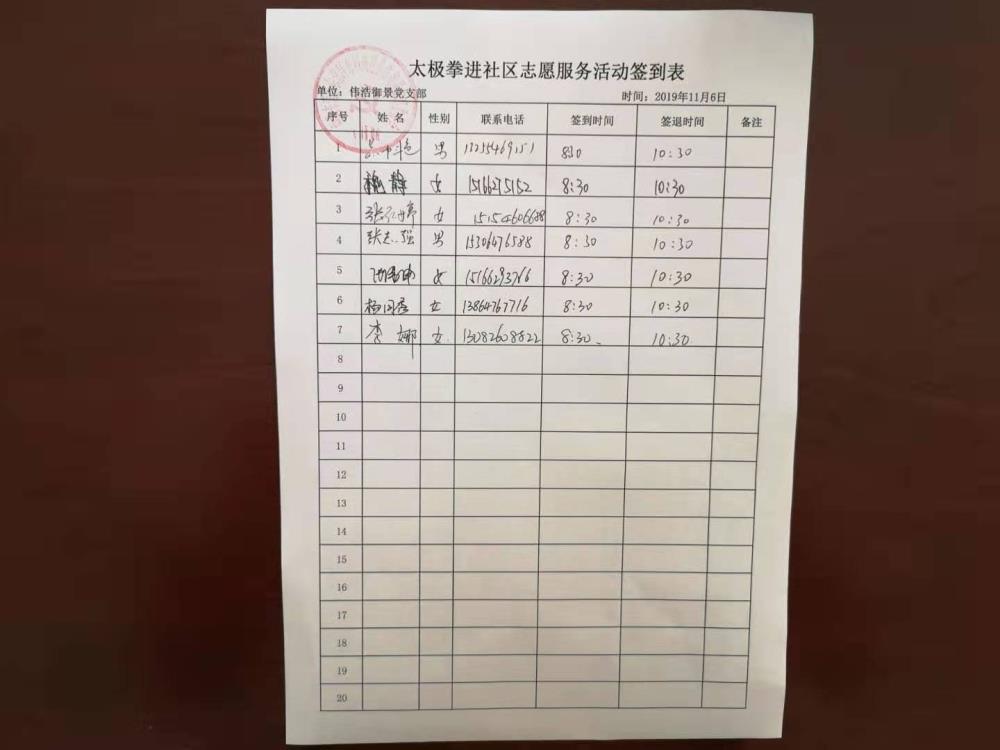 太极拳进社区志愿服务活动签到表
单位：伟浩御景党支部 时间：2019年11月6日
序号 姓名 性别 联系电话 签到时间 签退时间 备注
1 男 830 10:30
2 魏静 女 15166275152 8:30 10:30
3 女 15154606688 8:30 10:30
4 张志强 男 15306476588 8:30 10:30
5 女 15166293766 8:30 10:30
6 女 13864767716 8:30 10:30
7 李娜 女 13082608822 8:30 10:30
8
9
10
11
12
13
14
15
16
17
18
19
20